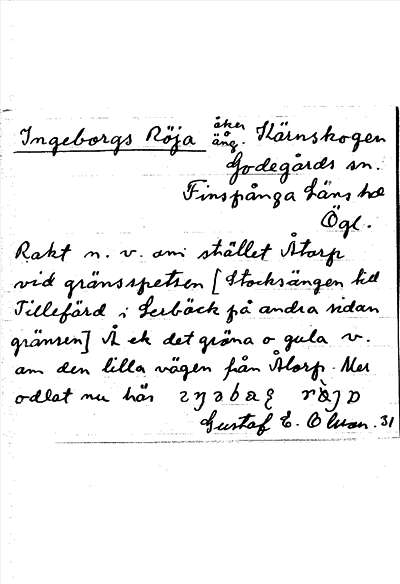 Ingeborgs Röja åker äng. Kärnskogen
Godegårds sn.
Finspånga Läns hd
Ögl.
Rakt n. v. om stället Åtorp
vid gränsspetsen [Stocksängen hd
Tillefärd i Lerbäck på andra sidan
gränsen] Å ek det gröna o gula v.
om den lilla vägen från Åtorp. Mer
odlat nu här
Gustaf E. Olsson. 31